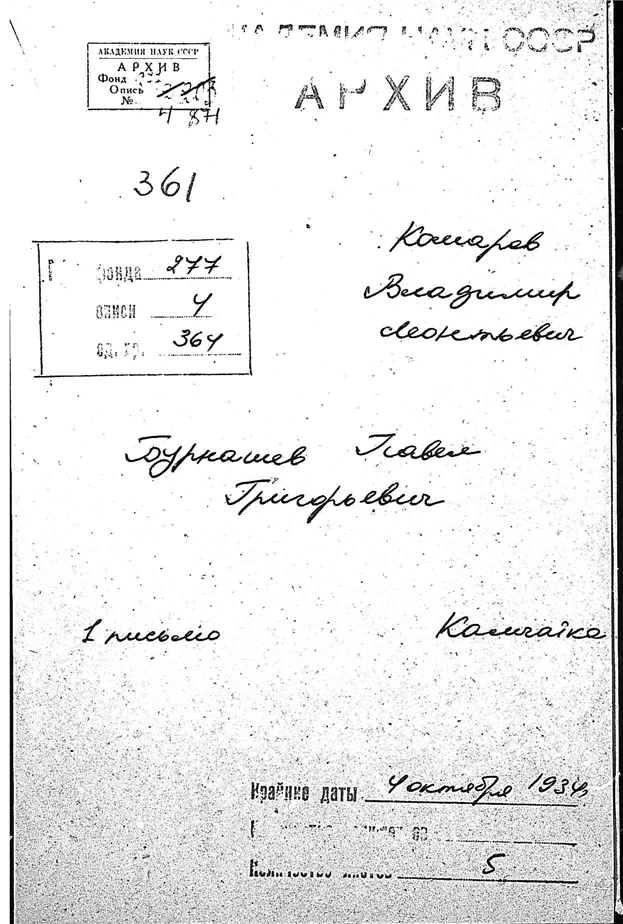 АКАДЕМИЯ НАУК СССР
АКАДЕМИЯ НАУК СССР
АРХИВ
АРХИВ
Фонд 277
Опись
№
4 871
361
фонда 277
описи 4
ед. хр. 364
Комаров
Владимир
Леонтьевич
Бурнашев Павел
Григорьевич
1 письмо
Камчатка
Крайние даты 4 октября 1934
Количество листов 5